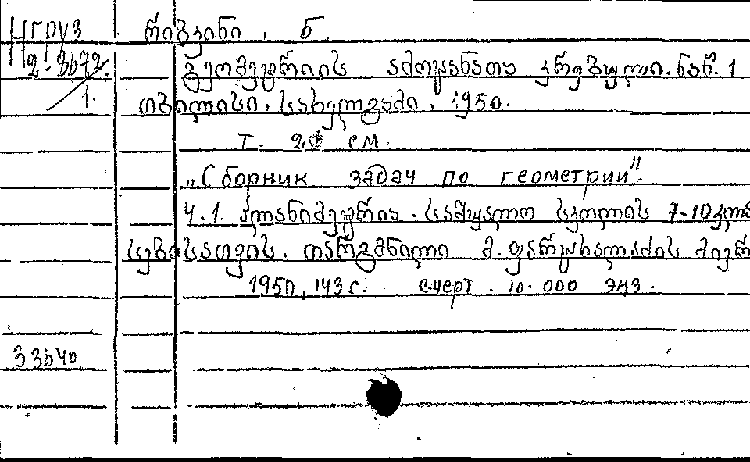 НГРУЗ რიბკინი, ნ.
2-3672. გეომეტრიის ამოცანათა კრებული. ნაწ. 1
1. თბილისი. სახელგამი, 1950.
т. см.
„Сборник задач по геометрии"
ч.1. პლანიმეტრია. საშუალო სკოლის 7-10 კლა
სებისათვის. თარგმნილი მ. ფარცხალაძის მიერ
1950, 143 с. с черт. 10.000 экз.
33640